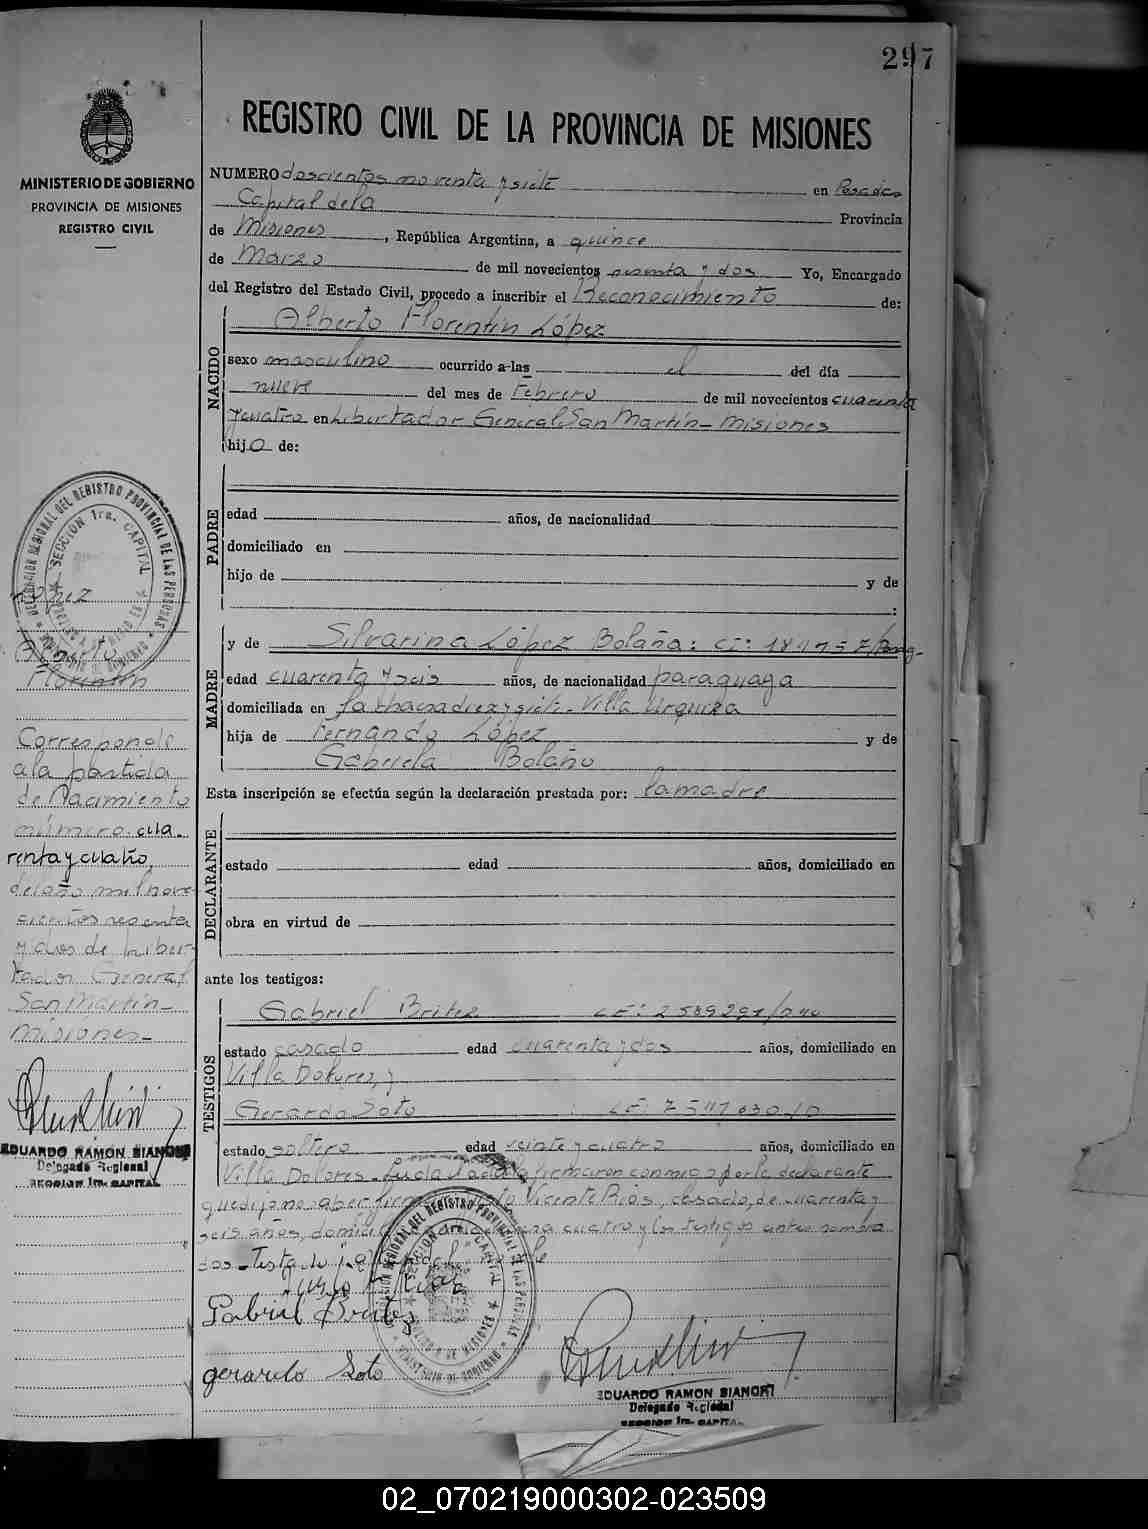 297
REGISTRO CIVIL DE LA PROVINCIA DE MISIONES
MINISTERIO DE GOBIERNO
PROVINCIA DE MISIONES
REGISTRO CIVIL
NUMERO doscientos noventa y siete en Posadas
Capital de la Provincia
de Misiones, República Argentina, a quince
de Marzo de mil novecientos sesenta y dos Yo, Encargado
del Registro del Estado Civil, procedo a inscribir el Reconocimiento de:
NACIDO
Alberto Florentin López
sexo masculino ocurrido a las el del día
nueve del mes de Febrero de mil novecientos cuarenta
y cuatro en Libertador General San Martín - Misiones
hijo de:
PADRE
edad años, de nacionalidad
domiciliado en
hijo de y de
:
MADRE
y de Silvarina López Bolaña: CI:
edad cuarenta y seis años, de nacionalidad paraguaya
domiciliada en la chacra diez y siete - Villa Urquiza
hija de Fernándo López y de
Gabriela Bolaño
Esta inscripción se efectúa según la declaración prestada por: la madre
DECLARANTE
estado edad años, domiciliado en
obra en virtud de
ante los testigos:
TESTIGOS
Gabriel Britez
estado casado edad cuarenta y dos años, domiciliado en
Villa Dolores, y
Gerardo Soto
estado soltero edad veinte y cuatro años, domiciliado en
Villa Dolores - Leida el acta la firmaron conmigo por la declarante
que dijo no saber firmar Vicente Rios, casado, de cuarenta y
seis años, cuatro y los testigos antes nombra
dos - Testado
Gabriel Britez
gerardo Soto
EDUARDO RAMON BIANCHI
Delegado Regional
SECCION 1ra. CAPITAL
DELEGACION REGIONAL DEL REGISTRO PROVINCIAL DE LAS PERSONAS
SECCION 1ra. CAPITAL
MINISTERIO DE GOBIERNO
López
Alberto
Florentin
Corresponde
a la partida
de Nacimiento
número cua-
renta y cuatro
del año mil nove
cientos sesenta
y dos de Liber-
tador General
San Martín -
misiones -
EDUARDO RAMÓN BIANCHI
Delegado Regional
SECCION 1ra. CAPITAL
02_070219000302-023509